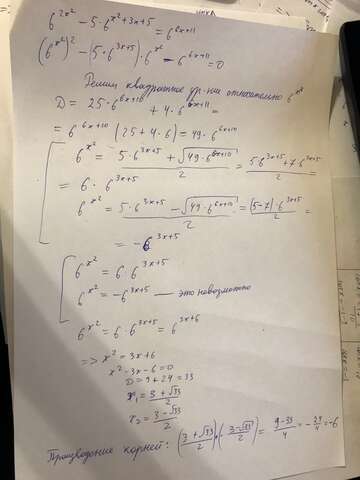 6^{2x²} - 5·6^{x²+3x+5} = 6^{6x+11}
(6^{x²})² - (5·6^{3x+5})·6^{x²} - 6^{6x+11} = 0
Решим квадратное ур-ние относительно 6^{x²}
D = 25·6^{6x+10} + 4·6^{6x+11} =
= 6^{6x+10} (25+4·6) = 49·6^{6x+10}
6^{x²} = (5·6^{3x+5} + √(49·6^{6x+10}))/2 = (5·6^{3x+5} + 7·6^{3x+5})/2 =
= 6·6^{3x+5}
6^{x²} = (5·6^{3x+5} - √(49·6^{6x+10}))/2 = ((5-7)·6^{3x+5})/2 =
= -6^{3x+5}
6^{x²} = 6·6^{3x+5}
6^{x²} = -6^{3x+5} — это невозможно
6^{x²} = 6·6^{3x+5} = 6^{3x+6}
=> x² = 3x+6
x² - 3x - 6 = 0
D = 9 + 24 = 33
x₁ = (3+√33)/2
x₂ = (3-√33)/2
Произведение корней: ((3+√33)/2)·((3-√33)/2) = (9-33)/4 = -24/4 = -6